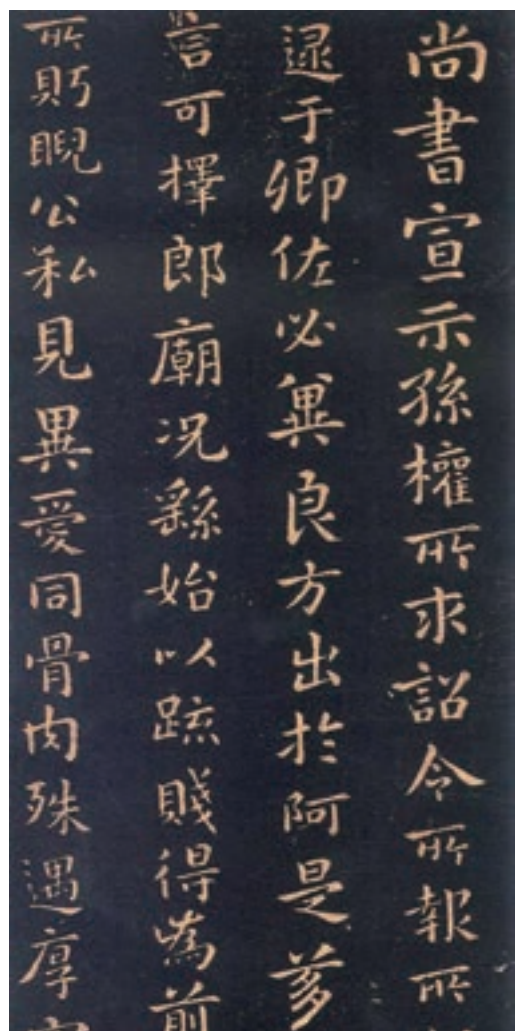 尚書宣示孫權所求詔令所報所
逮于卿佐必冀良方出於阿是芻
言可擇郎廟况繇始以疏賤得為前
所盻睨公私見異愛同骨肉殊遇厚